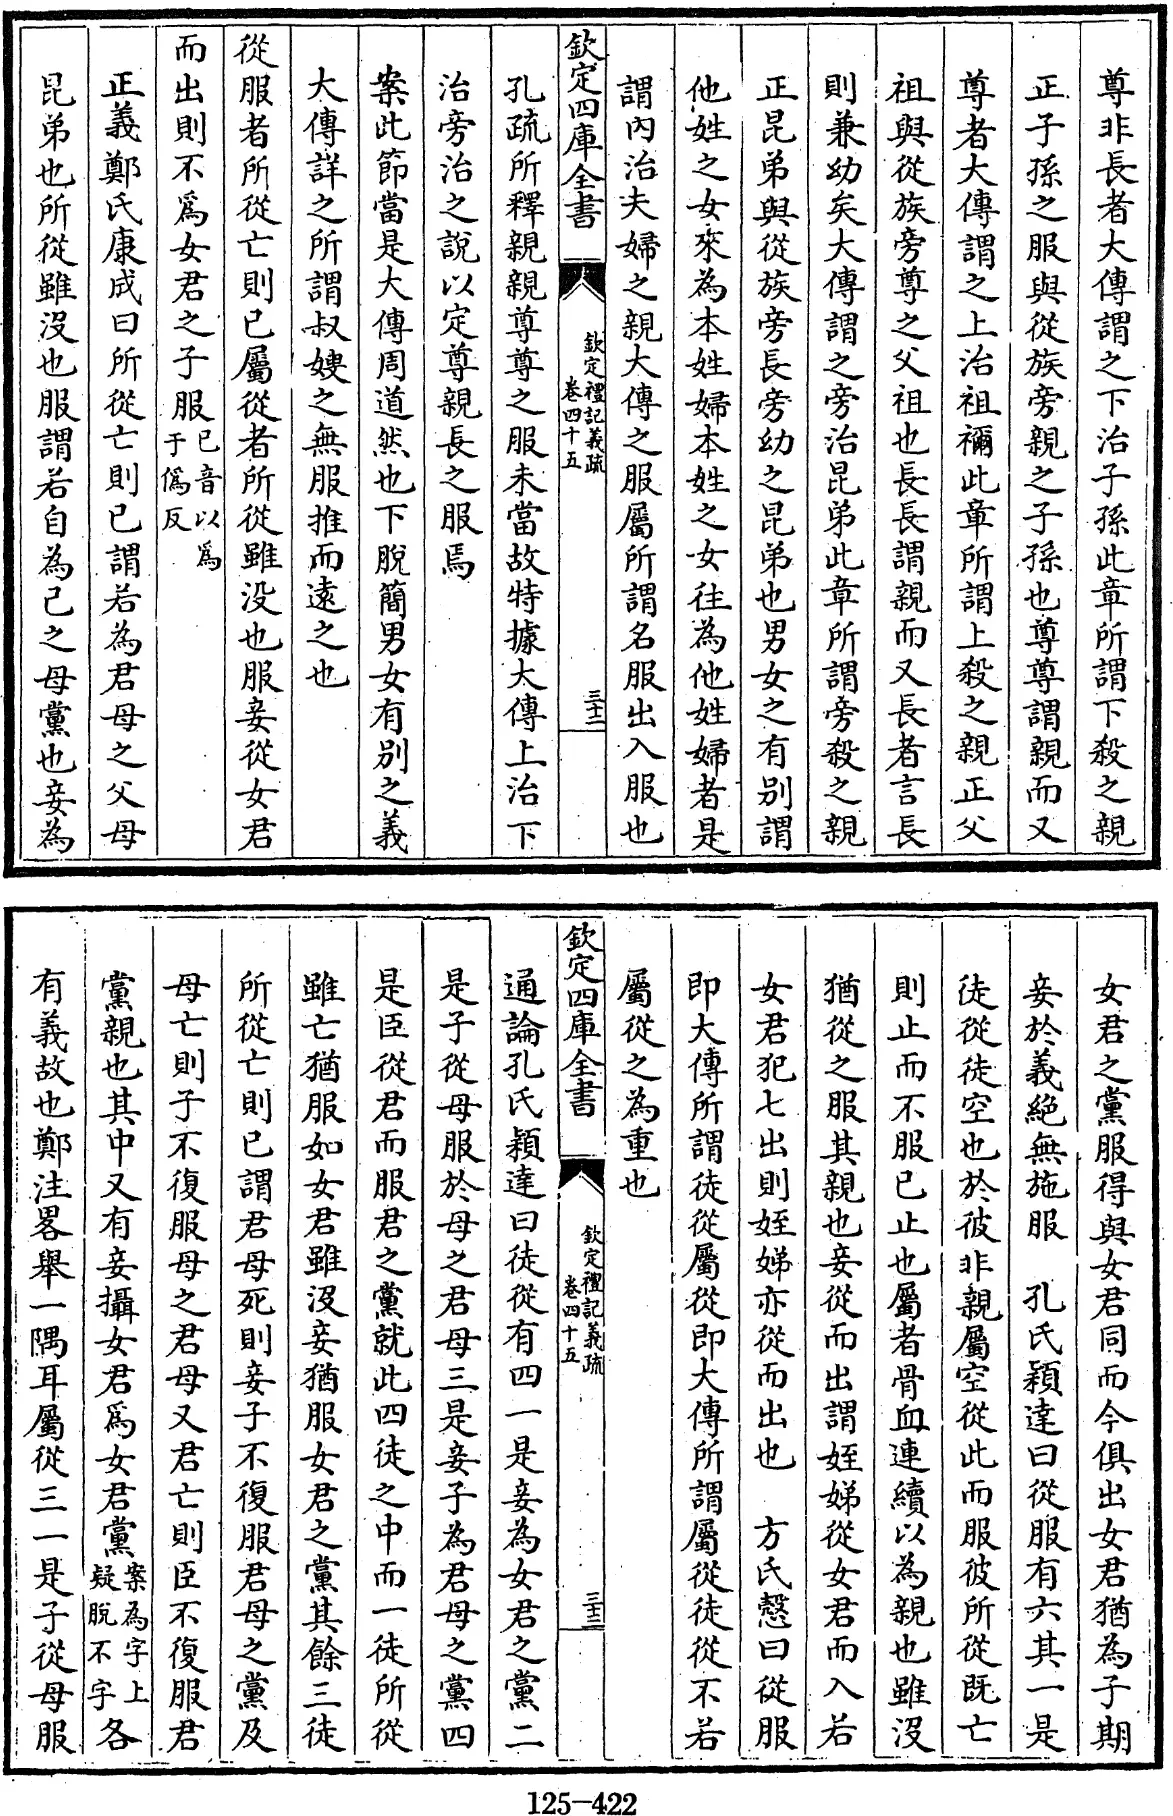 尊非長者大傳謂之下治子孫此章所謂下殺之親
正子孫之服與從族旁親之子孫也尊尊謂親而又
尊者大傳謂之上治祖禰此章所謂上殺之親正父
祖與從族旁尊之父祖也長長謂親而又長者言長
則兼幼矣大傳謂之旁治昆弟此章所謂旁殺之親
正昆弟與從族旁長旁幼之昆弟也男女之有別謂
他姓之女來為本姓婦本姓之女往為他姓婦者是
謂內治夫婦之親大傳之服屬所謂名服出入服也
欽定四庫全書
欽定禮記義疏
卷四十五
三十二
孔疏所釋親親尊尊之服未當故特據大傳上治下
治旁治之說以定尊親長之服焉
案此節當是大傳周道然也下脫簡男女有別之義
大傳詳之所謂叔嫂之無服推而遠之也
從服者所從亡則已屬從者所從雖没也服妾從女君
而出則不爲女君之子服已音以爲
于僞反
正義鄭氏康成曰所從亡則已謂若為君母之父母
昆弟也所從雖沒也服謂若自為己之母黨也妾為
女君之黨服得與女君同而今俱出女君猶為子期
妾於義絕無施服　孔氏穎達曰從服有六其一是
徒從徒空也於彼非親屬空從此而服彼所從既亡
則止而不服已止也屬者骨血連續以為親也雖沒
猶從之服其親也妾從而出謂姪娣從女君而入若
女君犯七出則姪娣亦從而出也　方氏慤曰從服
即大傳所謂徒從屬從即大傳所謂屬從徒從不若
屬從之為重也
欽定四庫全書
欽定禮記義疏
卷四十五
三十三
通論孔氏穎達曰徒從有四一是妾為女君之黨二
是子從母服於母之君母三是妾子為君母之黨四
是臣從君而服君之黨就此四徒之中而一徒所從
雖亡猶服如女君雖沒妾猶服女君之黨其餘三徒
所從亡則已謂君母死則妾子不復服君母之黨及
母亡則子不復服母之君母又君亡則臣不復服君
黨親也其中又有妾攝女君爲女君黨案為字上
疑脫不字各
有義故也鄭注畧舉一隅耳屬從三一是子從母服
125-422